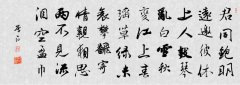 君同鮑明
遠邀彼休
上人鼓琴
亂白雪秋
變江上春
瑤草綠未
衰攀翻寄
情親相思
兩不見流
淚空盈巾